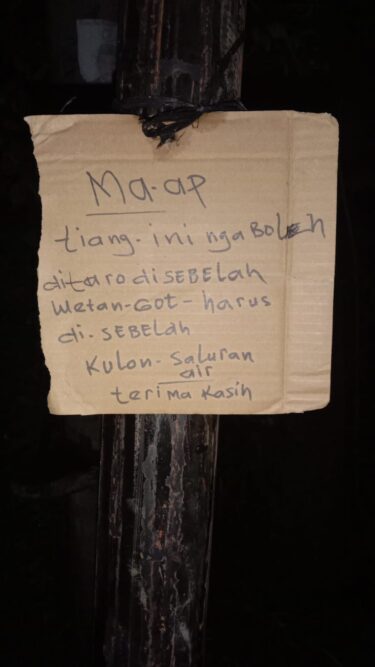 Ma-ap
tiang-ini nga BOLEh
ditaro diSEBELah
Wetan-GOT-harus
di-SEBELah
Kulon-Saluran
air
teriMa Kasih